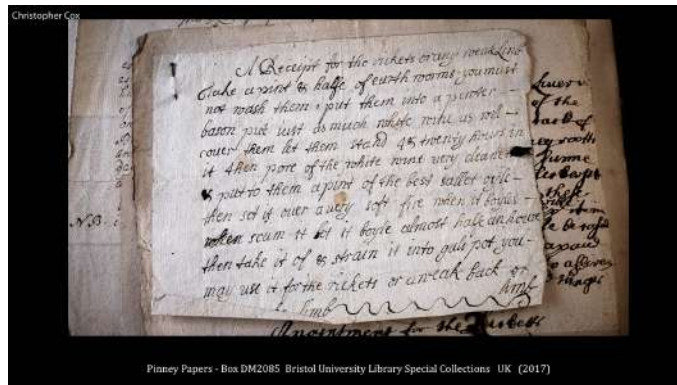 Christopher Cox
A Receipt for the rickets or any weak Limb
Take a pint & halfe of earth worms you must
not wash them, put them into a pewter –
bason put just as much white wine as wil –
cover them let them stand 4 & twenty hours in
it then pore of the white wine very cleane
& put to them a pint of the best sallet oyle –
then set it over a very soft fire when it boyles –
then scum it let it boyle almost halfe an houre
then take it of & strain it into gali pot you –
may use it for the rickets or a weak back or
limb limb
N.B.
of the
Anointment for the Ricketts
Pinney Papers - Box DM2085 Bristol University Library Special Collections UK (2017)